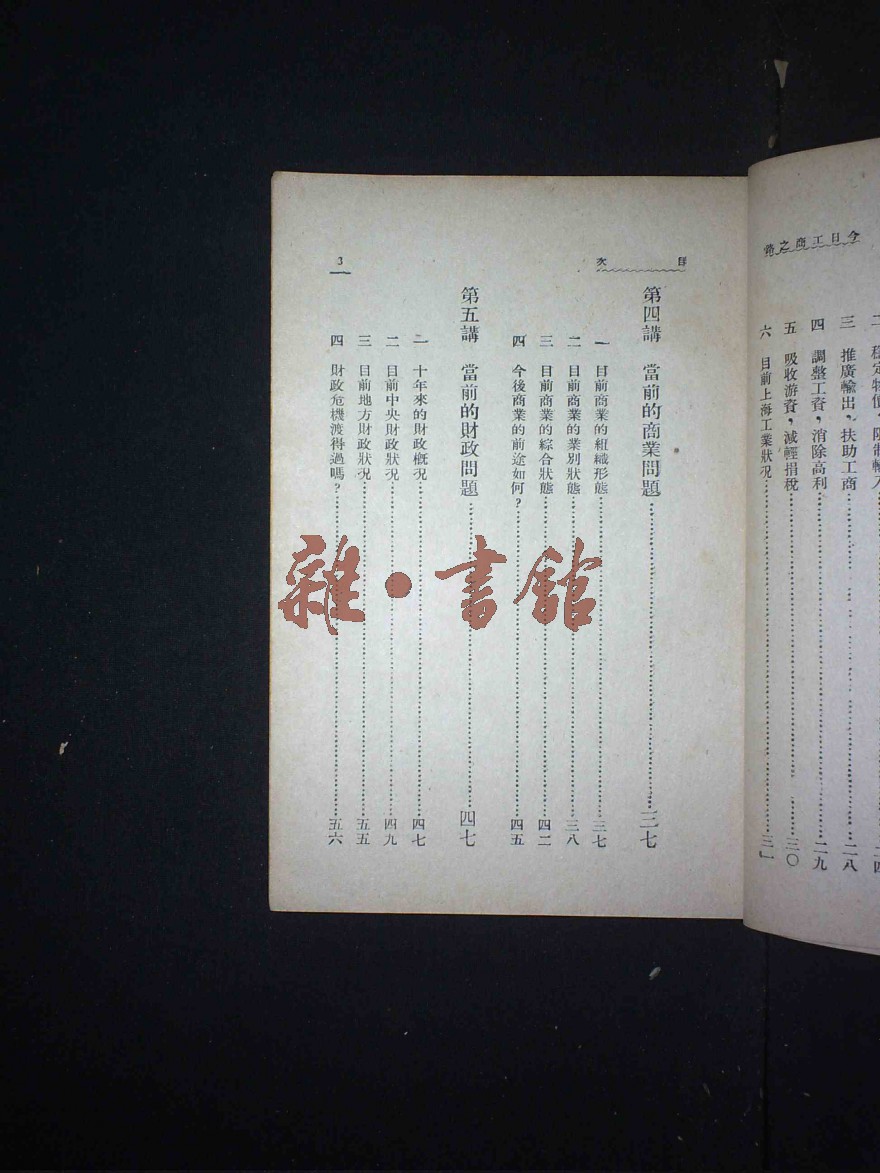 今日工商之路
三 推廣輸出，扶助工商……二八
四 調整工資，消除高利……二九
五 吸收游資，減輕捐稅……三〇
六 目前上海工業狀況……三一
目次
3
第四講 當前的商業問題……三七
一 目前商業的組織形態……三七
二 目前商業的業別狀態……三八
三 目前商業的綜合狀態……四二
四 今後商業的前途如何？……四五
第五講 當前的財政問題……四七
一 十年來的財政概況……四七
二 目前中央財政狀況……四九
三 目前地方財政狀況……五五
四 財政危機渡得過嗎？……五六
雜·書館